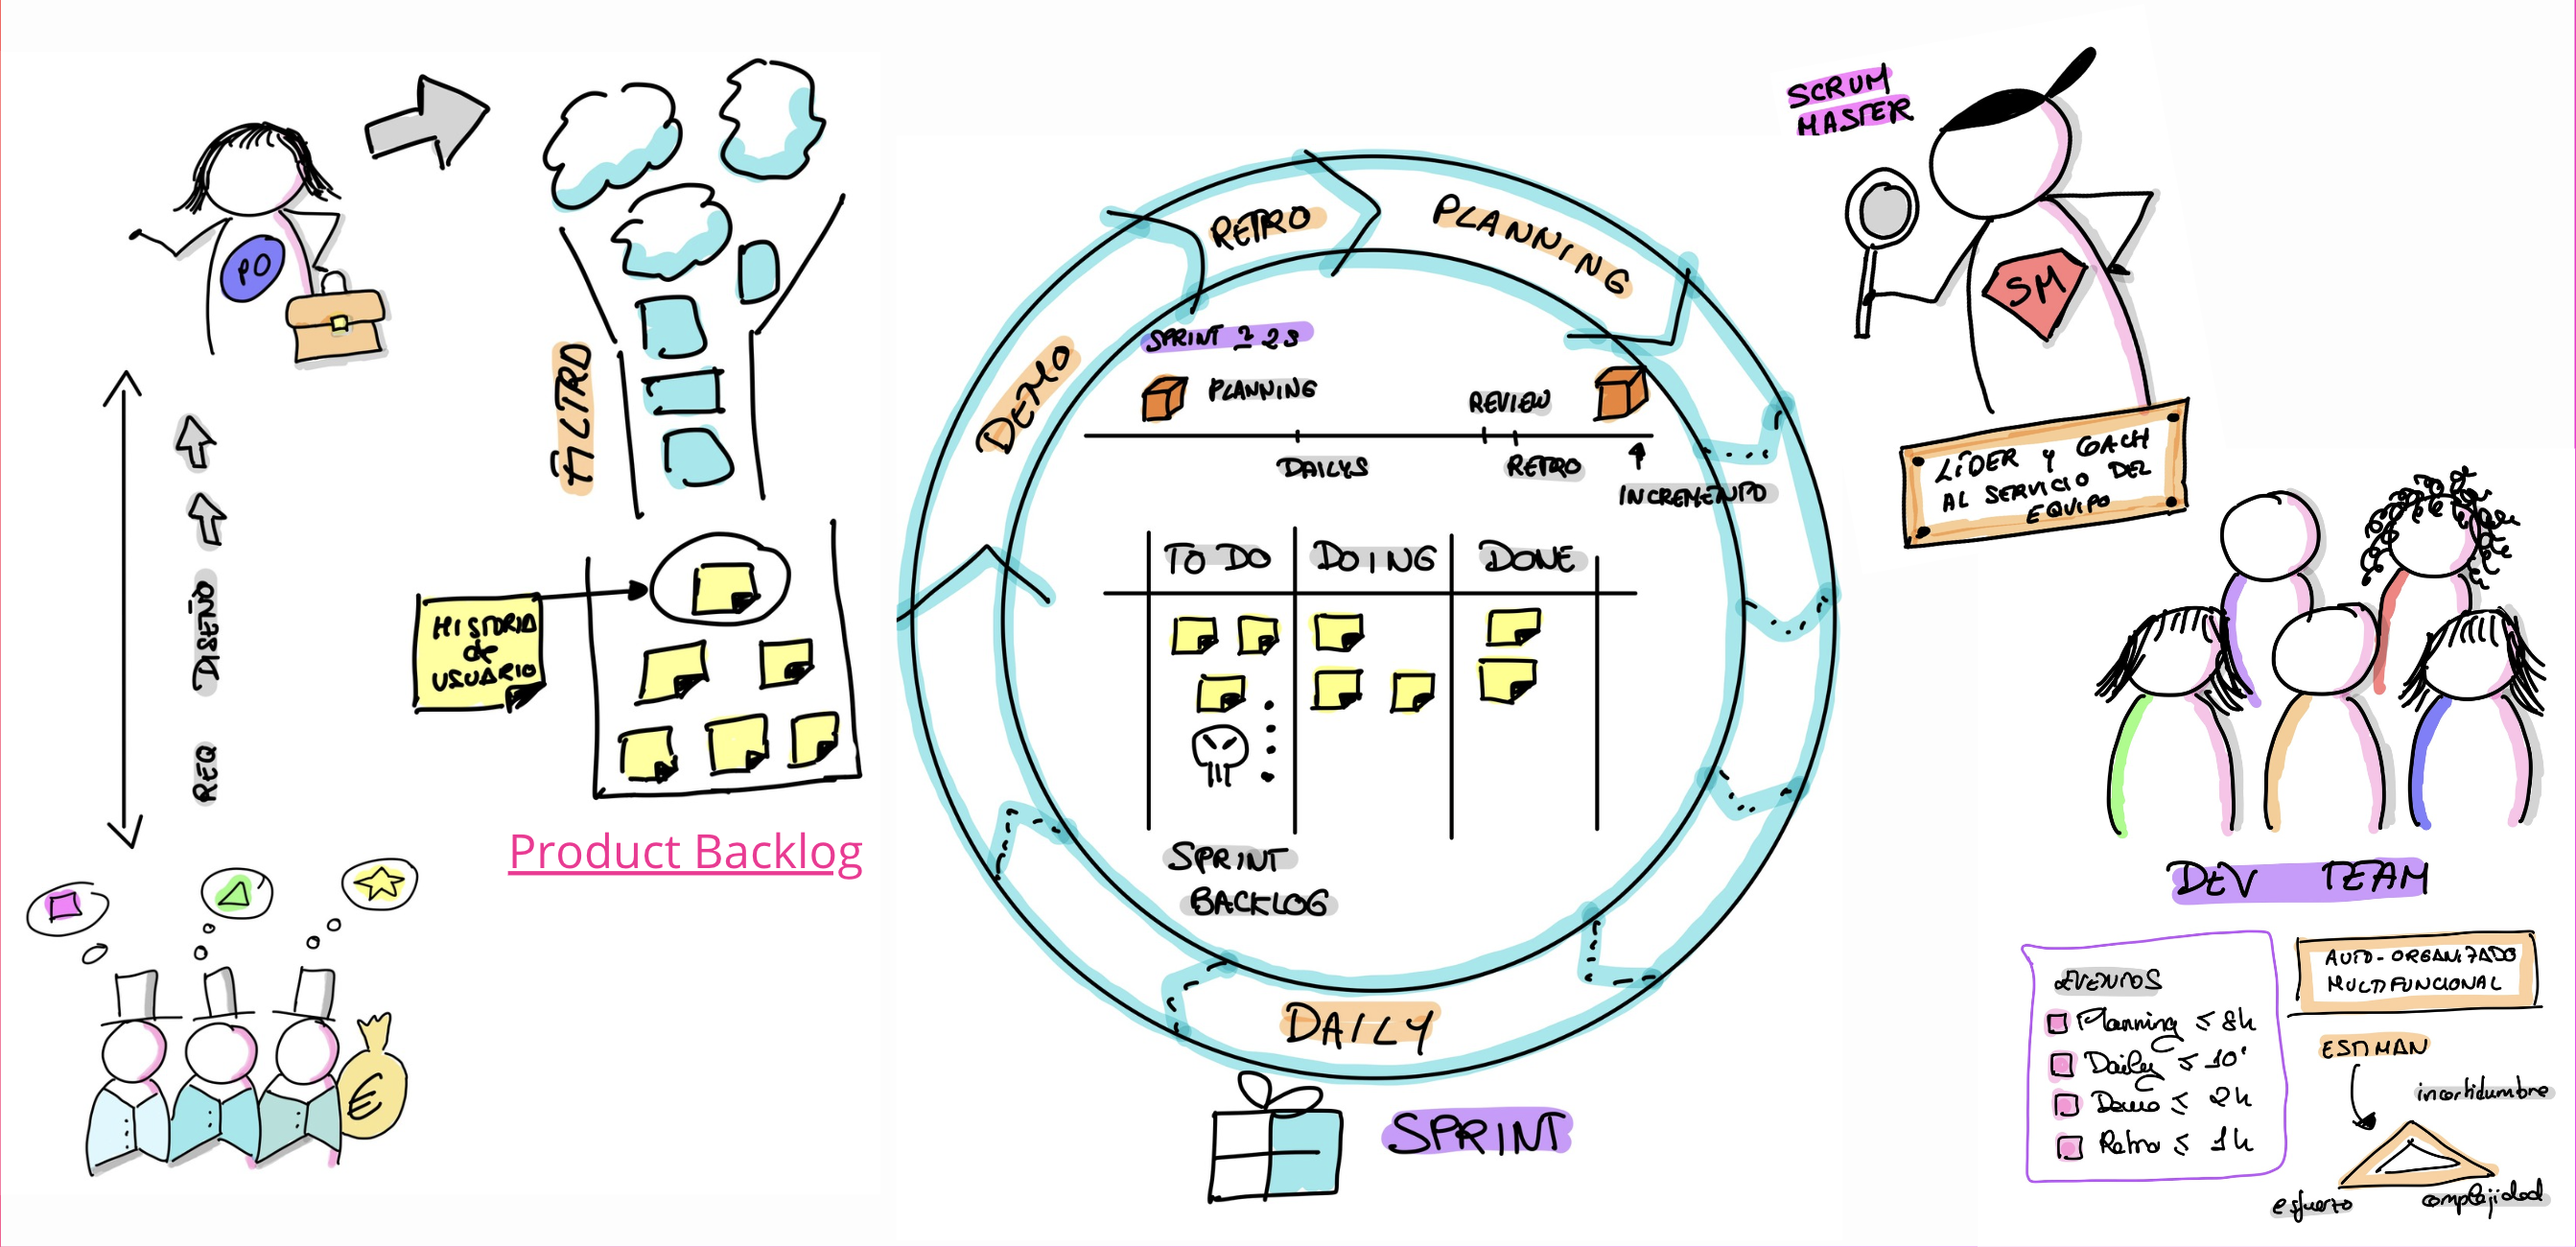 PO
FILTRO
REQ DISEÑO
HISTORIA
de
USUARIO
Product Backlog
€
RETRO
PLANNING
DEMO
DAILY
PLANNING
REVIEW
DAILYS
RETRO
INCREMENTO
TO DO
DOING
DONE
SPRINT
BACKLOG
SPRINT
SCRUM
MASTER
SM
LÍDER Y COACH
AL SERVICIO DEL
EQUIPO
DEV TEAM
EVENTOS
Planning ≤ 8h
Daily ≤ 10'
Demo ≤ 2h
Retro ≤ 1h
AUTO-ORGANIZADO
MULTIFUNCIONAL
ESTIMAN
incertidumbre
esfuerzo
complejidad